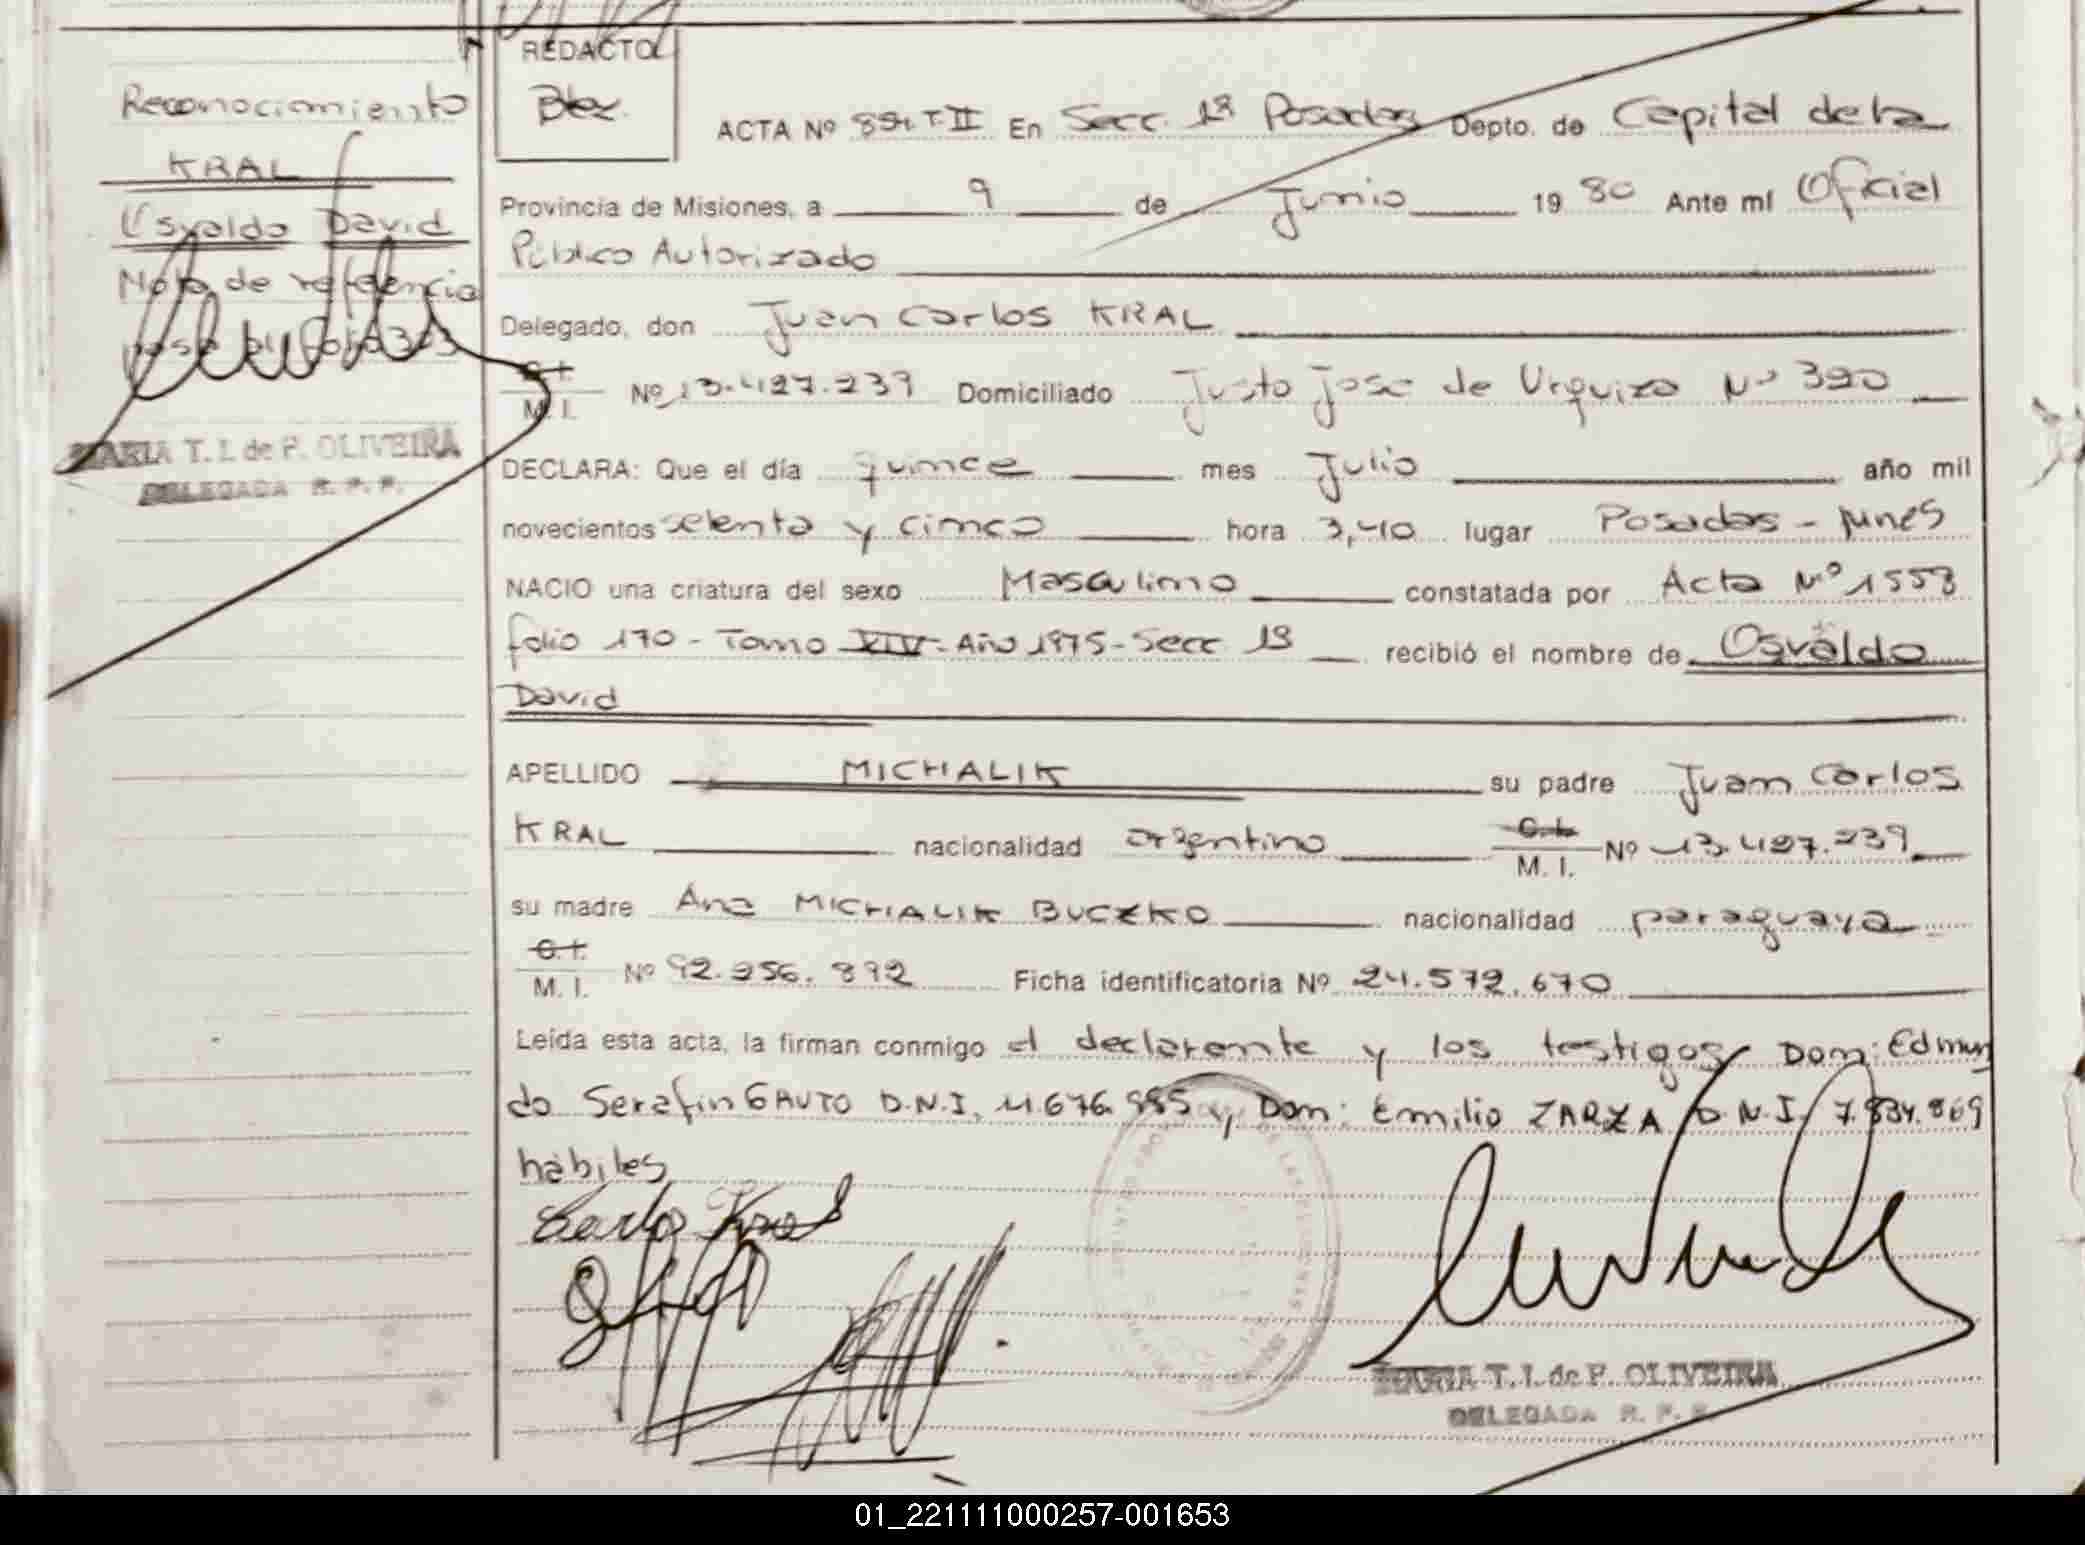 Reconocimiento
KRAL
Osvaldo David
Nota de referencia
pase al folio 323
MARIA T. I. de F. OLIVEIRA
DELEGADA R. P. P.
REDACTO
ACTA Nº T. II En Secc. 1ª Posadas Depto. de Capital de la
Provincia de Misiones, a 9 de Junio 19 80 Ante mí Oficial
Público Autorizado
Delegado, don Juan Carlos KRAL
C. I.
M. I. Nº 13.427.239 Domiciliado Justo José de Urquiza Nº 320
DECLARA: Que el día quince mes Julio año mil
novecientos setenta y cinco hora 3,40 lugar Posadas - Mnes
NACIO una criatura del sexo Masculino constatada por Acta Nº 1553
folio 170 - Tomo XIV - Año 1975 - Secc 1ª recibió el nombre de Osvaldo
David
APELLIDO MICHALIK su padre Juan Carlos
KRAL nacionalidad argentino C. I.
M. I. Nº 13.427.239
su madre Ana MICHALIK BUCZKO nacionalidad paraguaya
C. I.
M. I. Nº 92.256.892 Ficha identificatoria Nº 24.572.670
Leída esta acta, la firman conmigo el declarante y los testigos Don: Edmun
do Serafin GAUTO D.N.I. 11.676.985 y Don: Emilio ZARZA D.N.I. 7.834.869
hábiles
Carlos Kral
MARIA T. I. de F. OLIVEIRA
DELEGADA R. P. P.
01_221111000257-001653